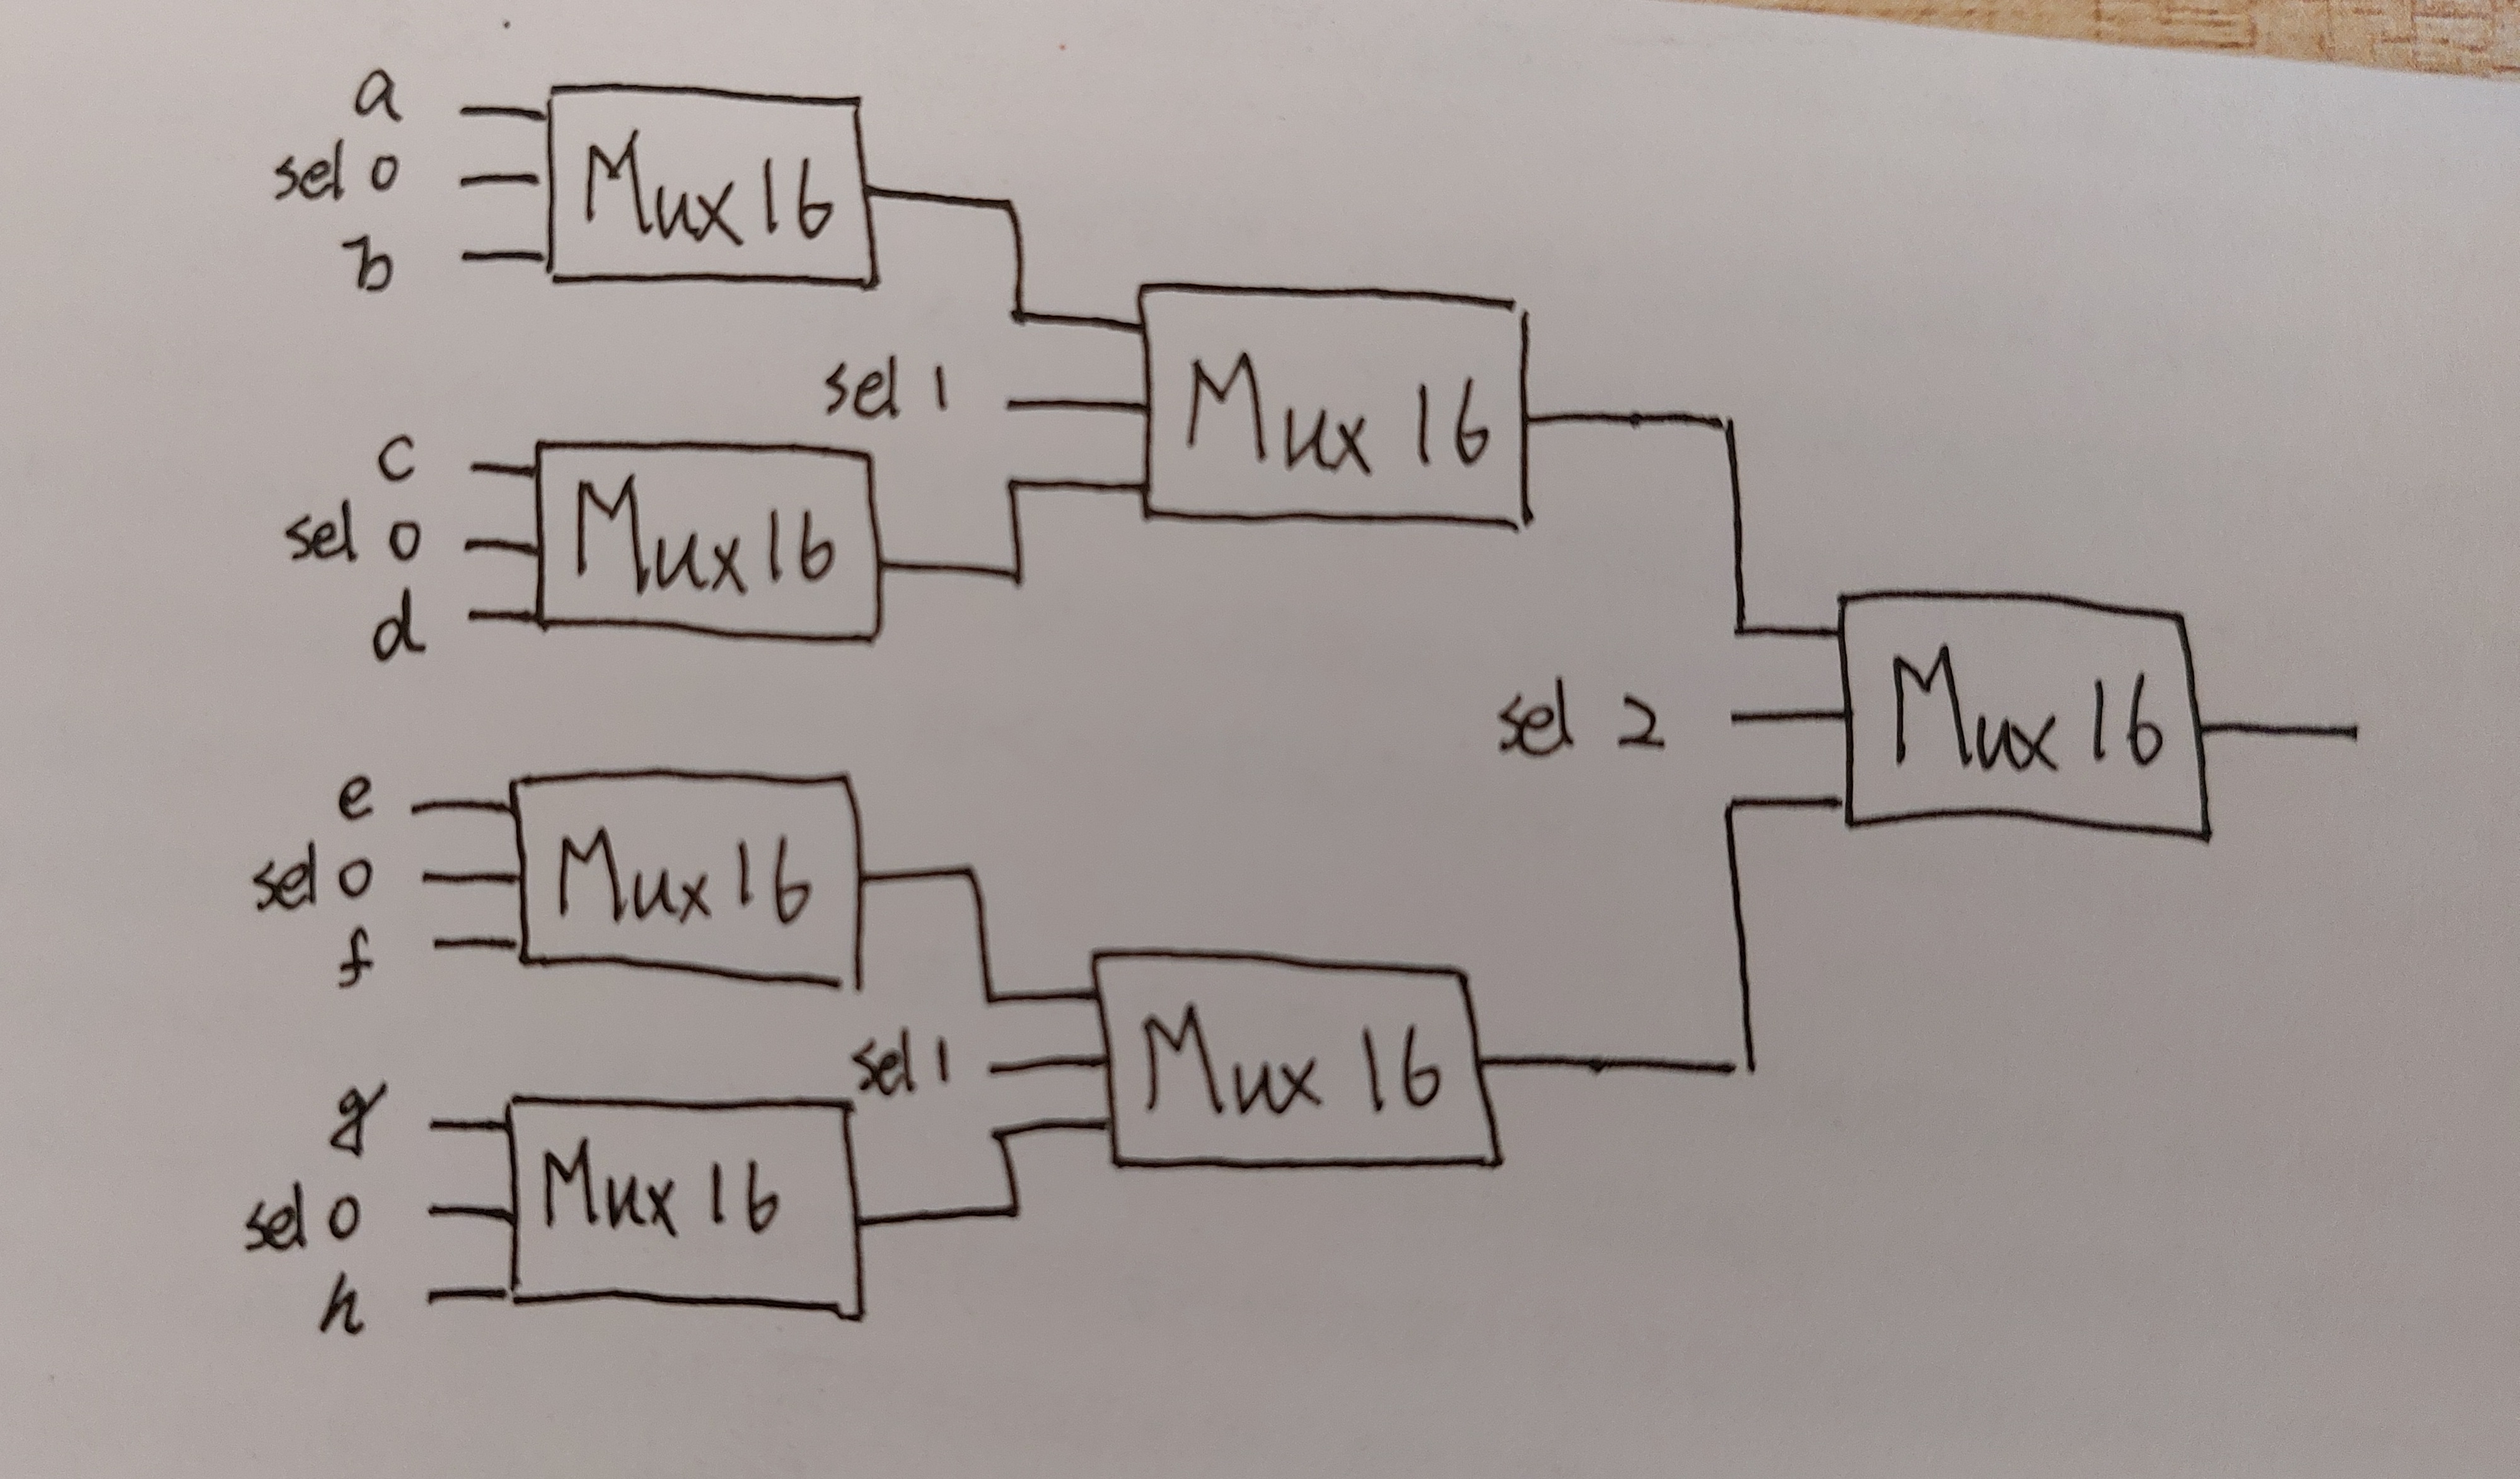 a
sel 0
b
Mux 16
sel 1
Mux 16
c
sel 0
d
Mux 16
sel 2
Mux 16
e
sel 0
f
Mux 16
sel 1
Mux 16
g
sel 0
h
Mux 16